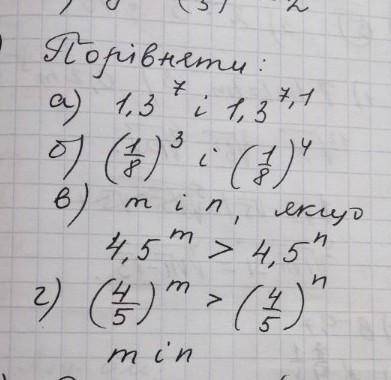 Порівняти:
а) 1,3^7 і 1,3^7,1
б) (1/8)^3 і (1/8)^4
в) m і n, якщо
4,5^m > 4,5^n
г) (4/5)^m > (4/5)^n
m і n